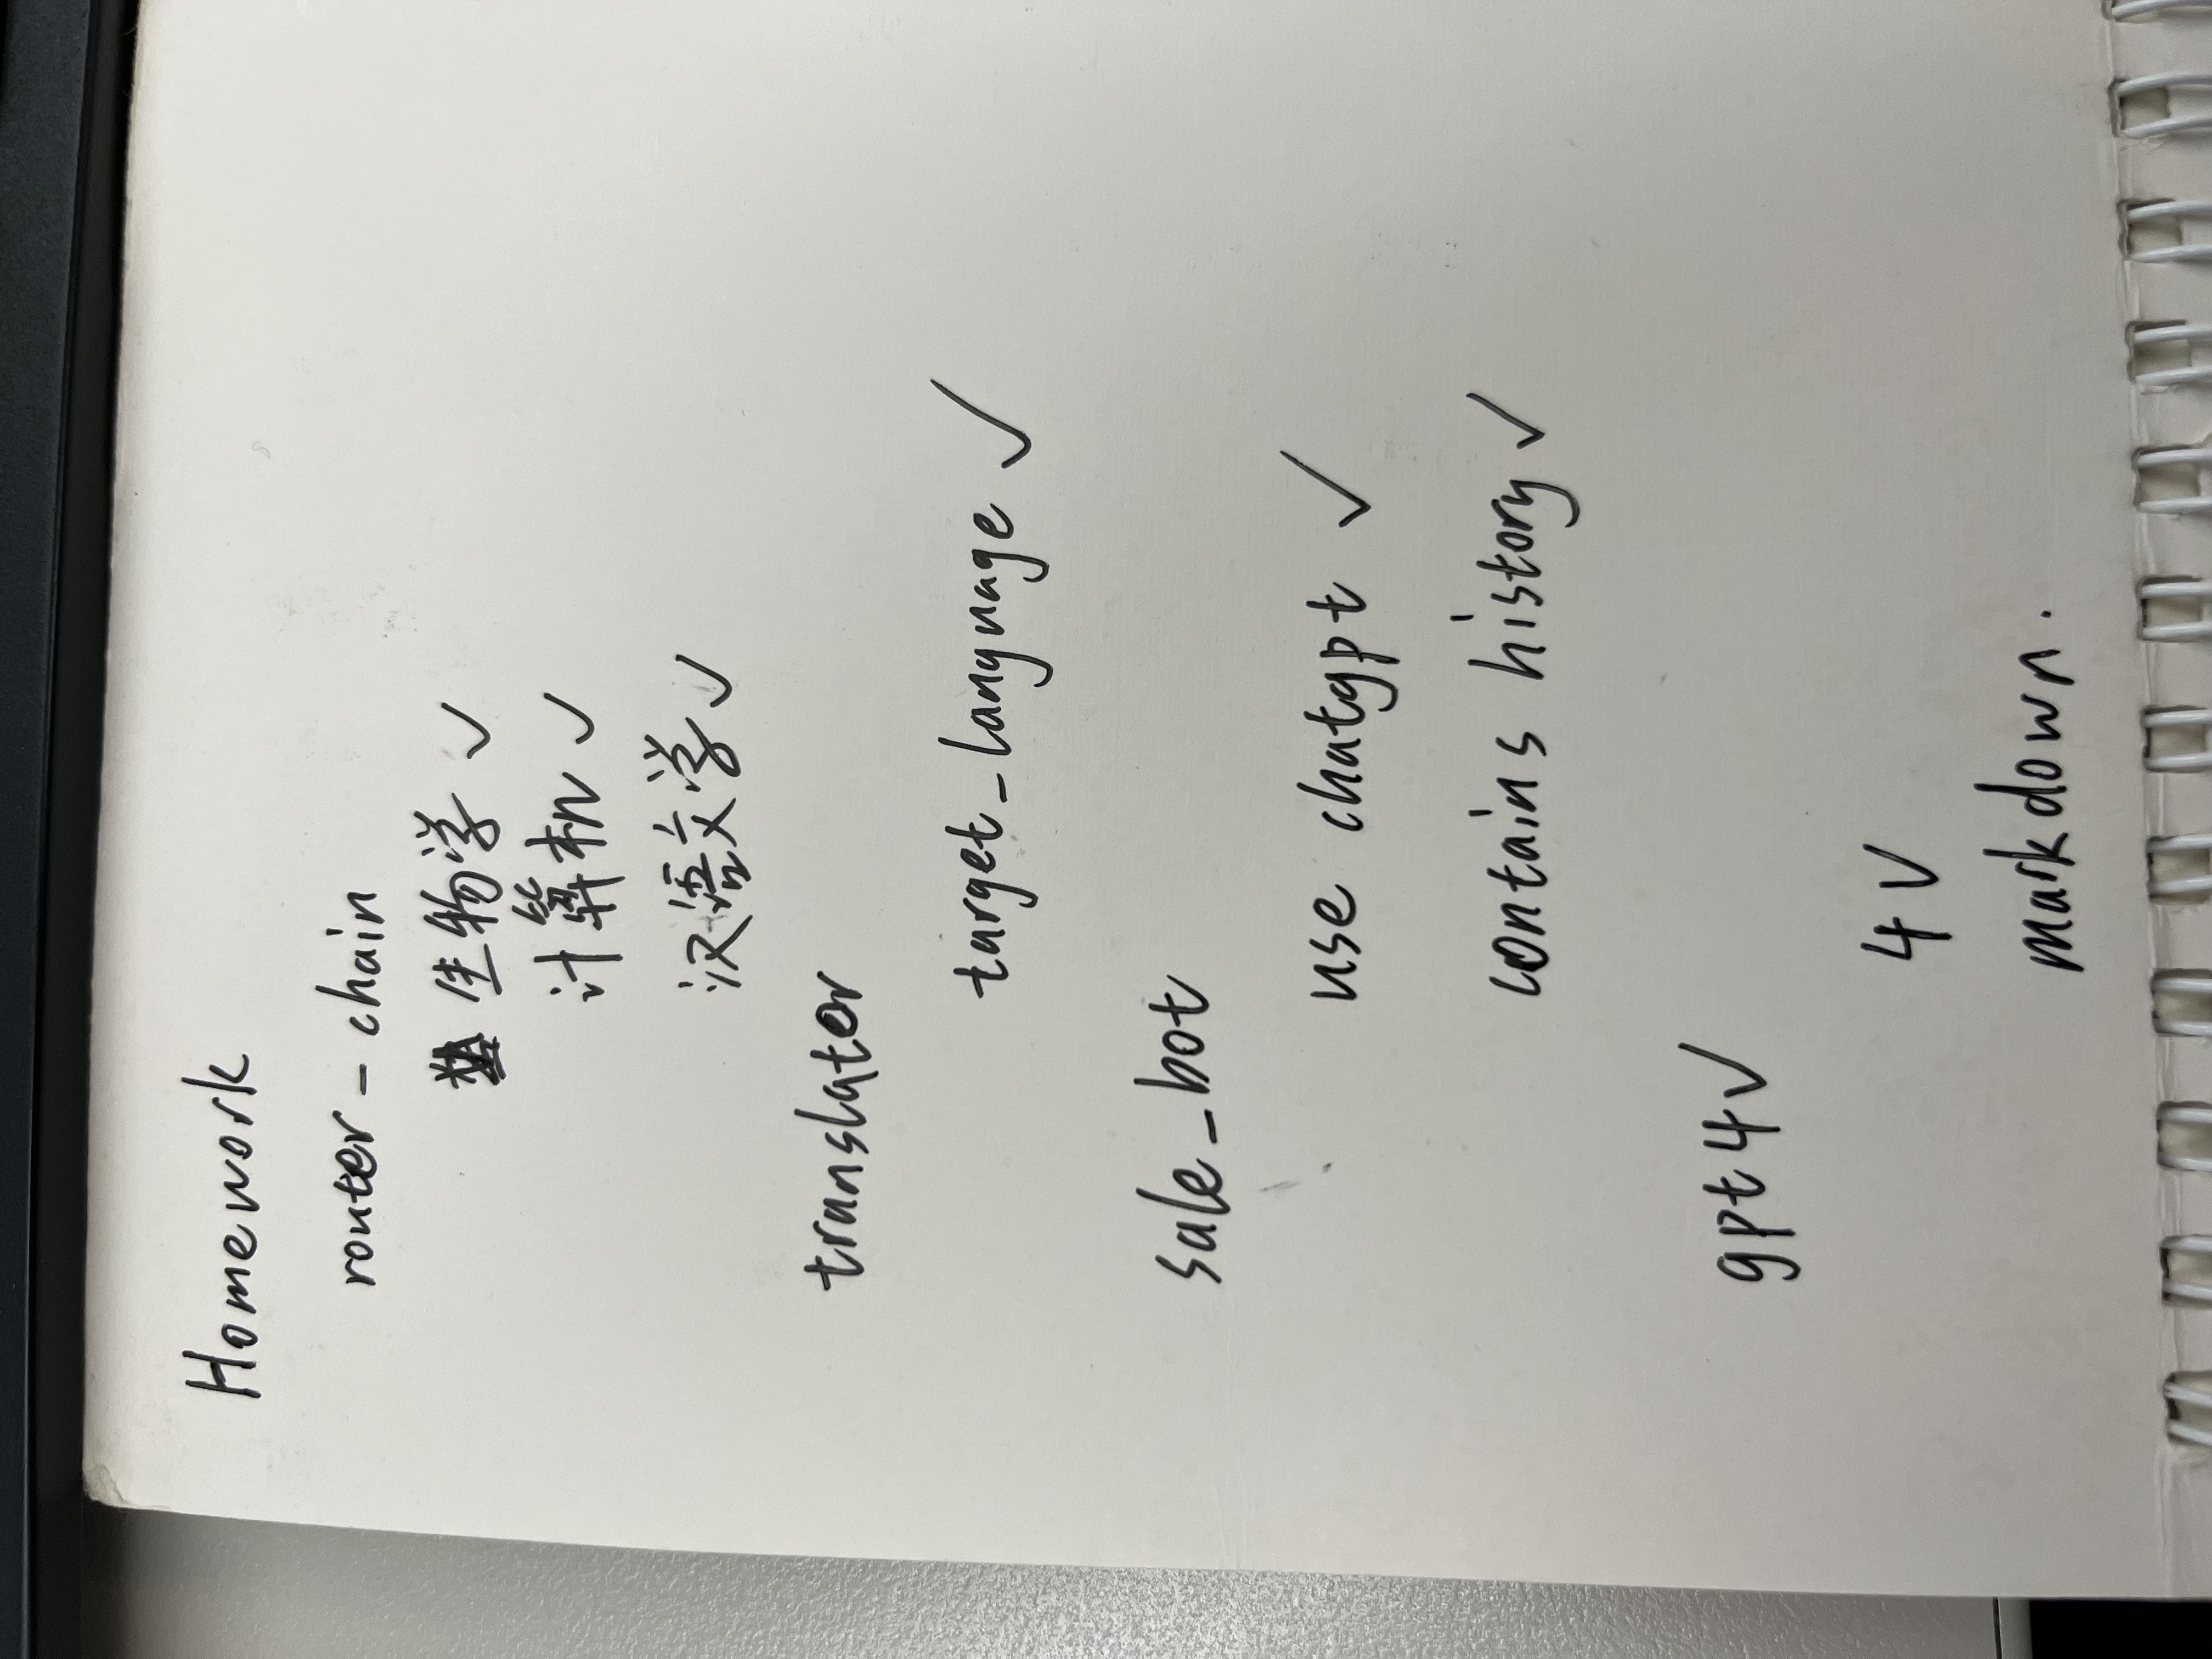 Homework
router-chain
生物学 ✓
计算机 ✓
汉语文学 ✓
translator
target_language ✓
sale_bot
use chatgpt ✓
contains history ✓
gpt4v
4V
markdown.